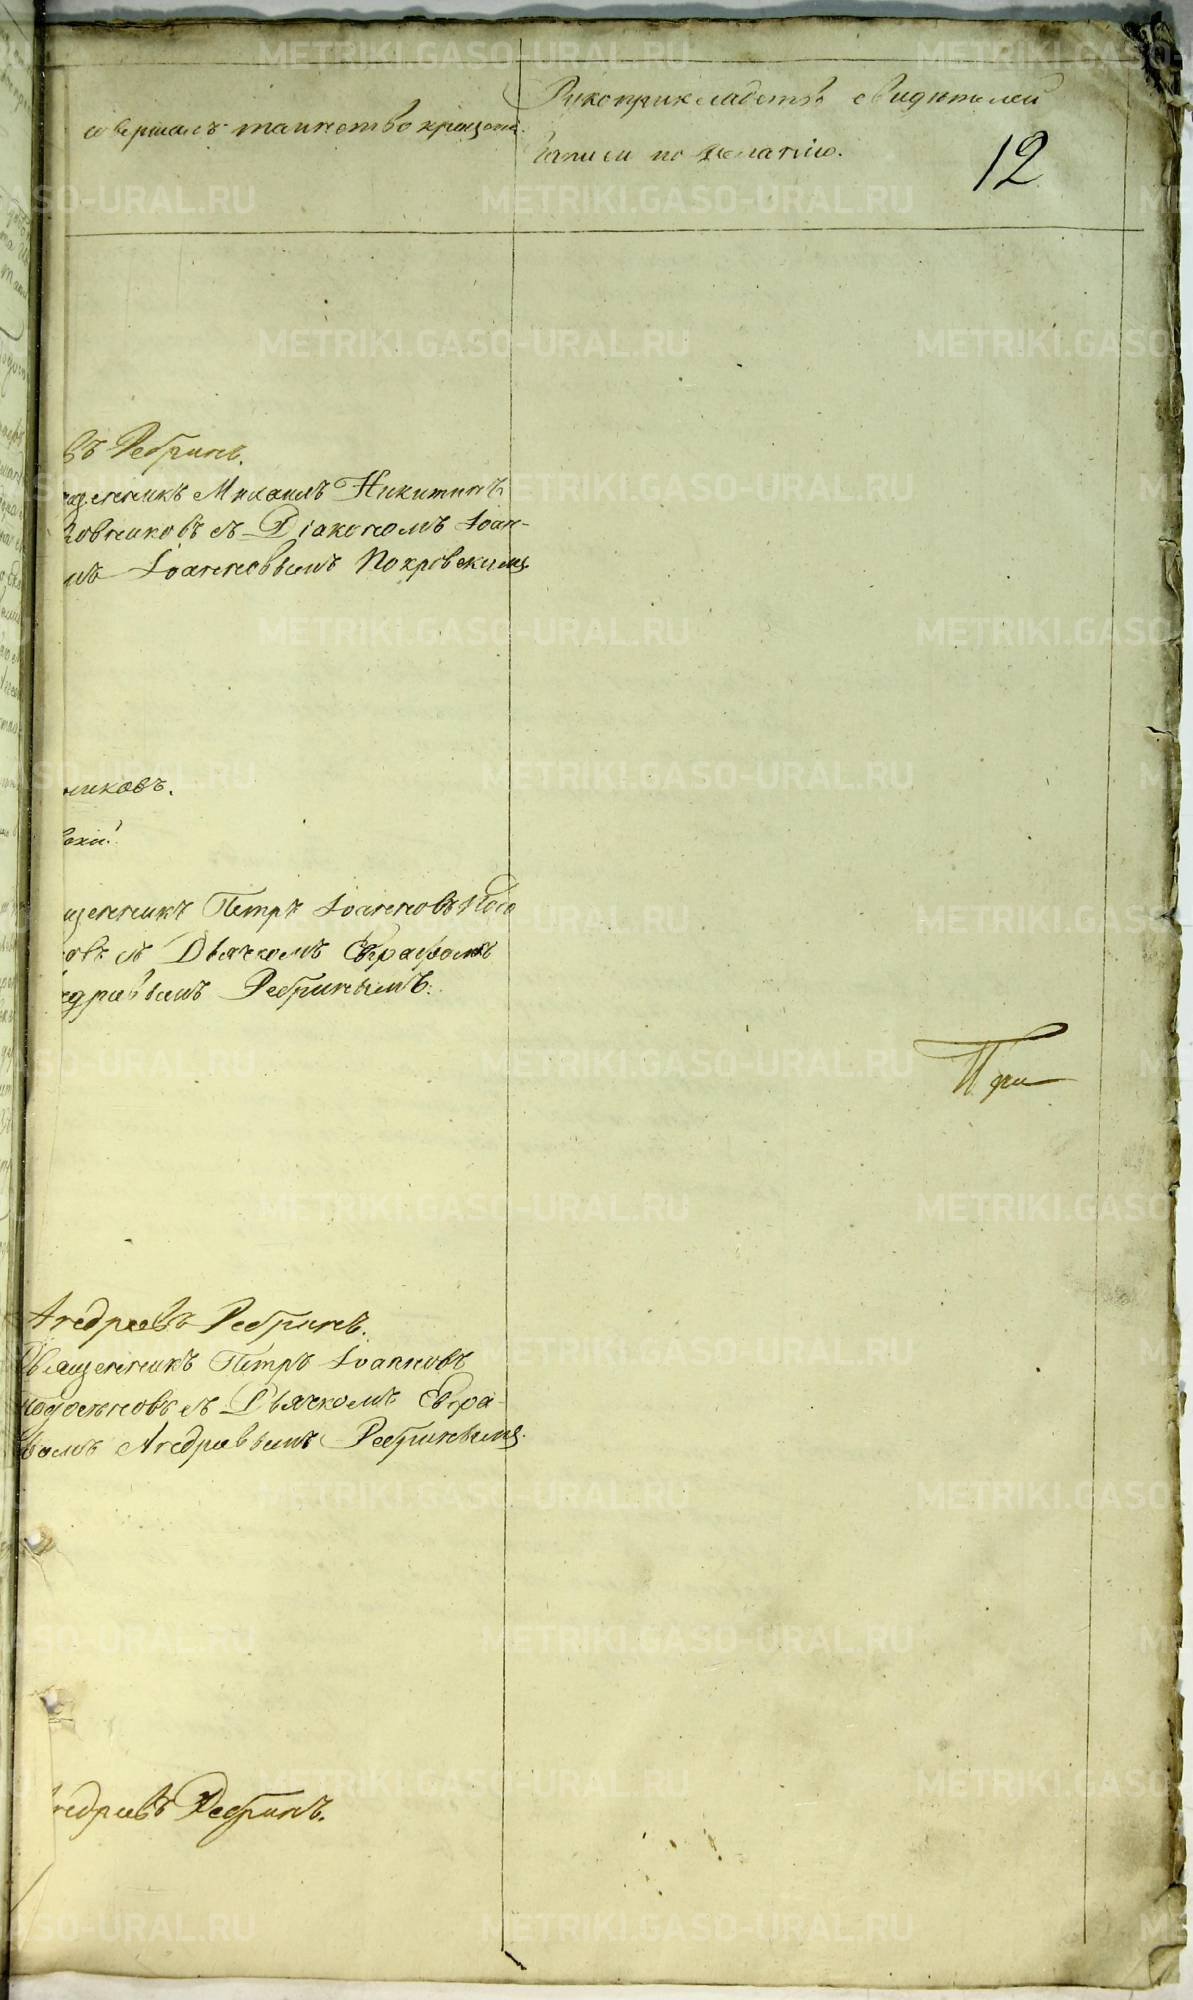 совершалъ таинство крещенія.
Рукоприкладство свидѣтелей
записи по желанію.
12
въ Ребринъ.
щенникъ Михаилъ Никитинъ
ковниковъ съ Діакономъ Іоан-
мъ Іоанновымъ Покровскимъ
никовъ.
щенникъ Петръ Іоанновъ
овъ съ Дьячкомъ Евграфомъ
ндреевымъ Ребринымъ.
При
Андреевъ Ребринъ.
Священникъ Петръ Іоанновъ
съ Дьячкомъ Евгра-
фомъ Андреевымъ Ребринымъ.
ндреевъ Ребринъ.
METRIKI.GASO-URAL.RU